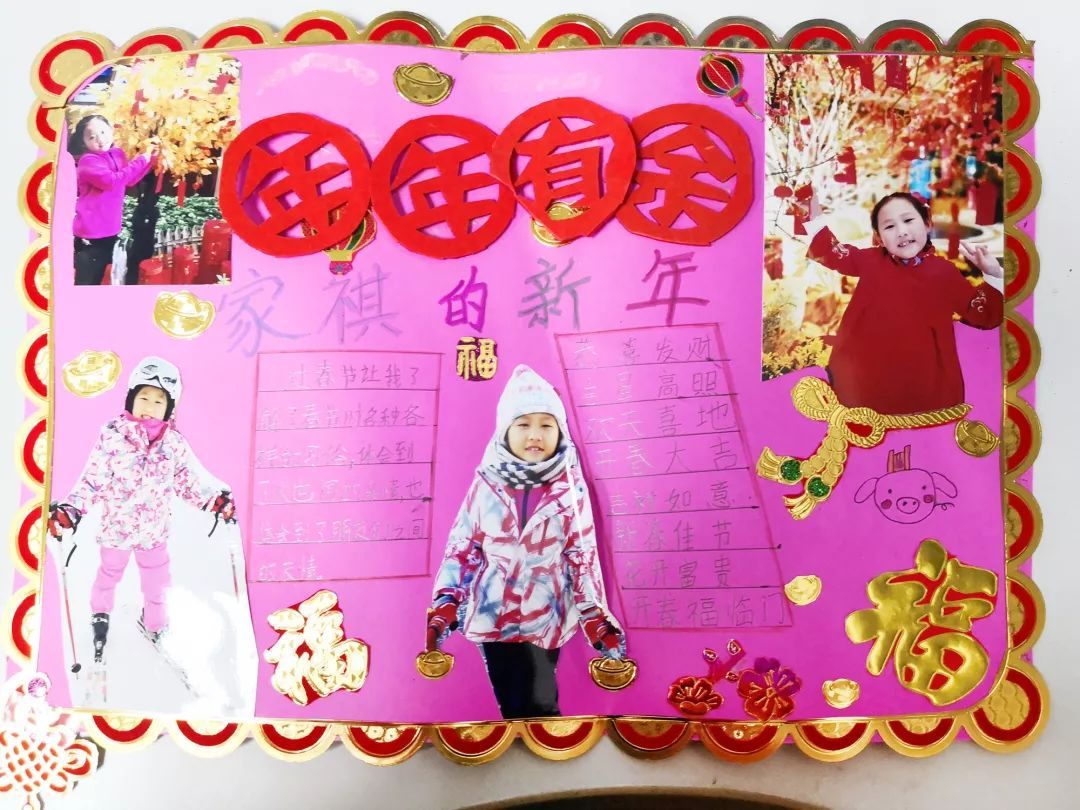 年年有余
家祺的新年
福
过春节让我了
解了春节的各种各
样的习俗,体会到
也
体会到了朋友们之间
的友情。
恭喜发财
吉星高照
欢天喜地
开春大吉
吉祥如意
新春佳节
花开富贵
开春福临门
福
福